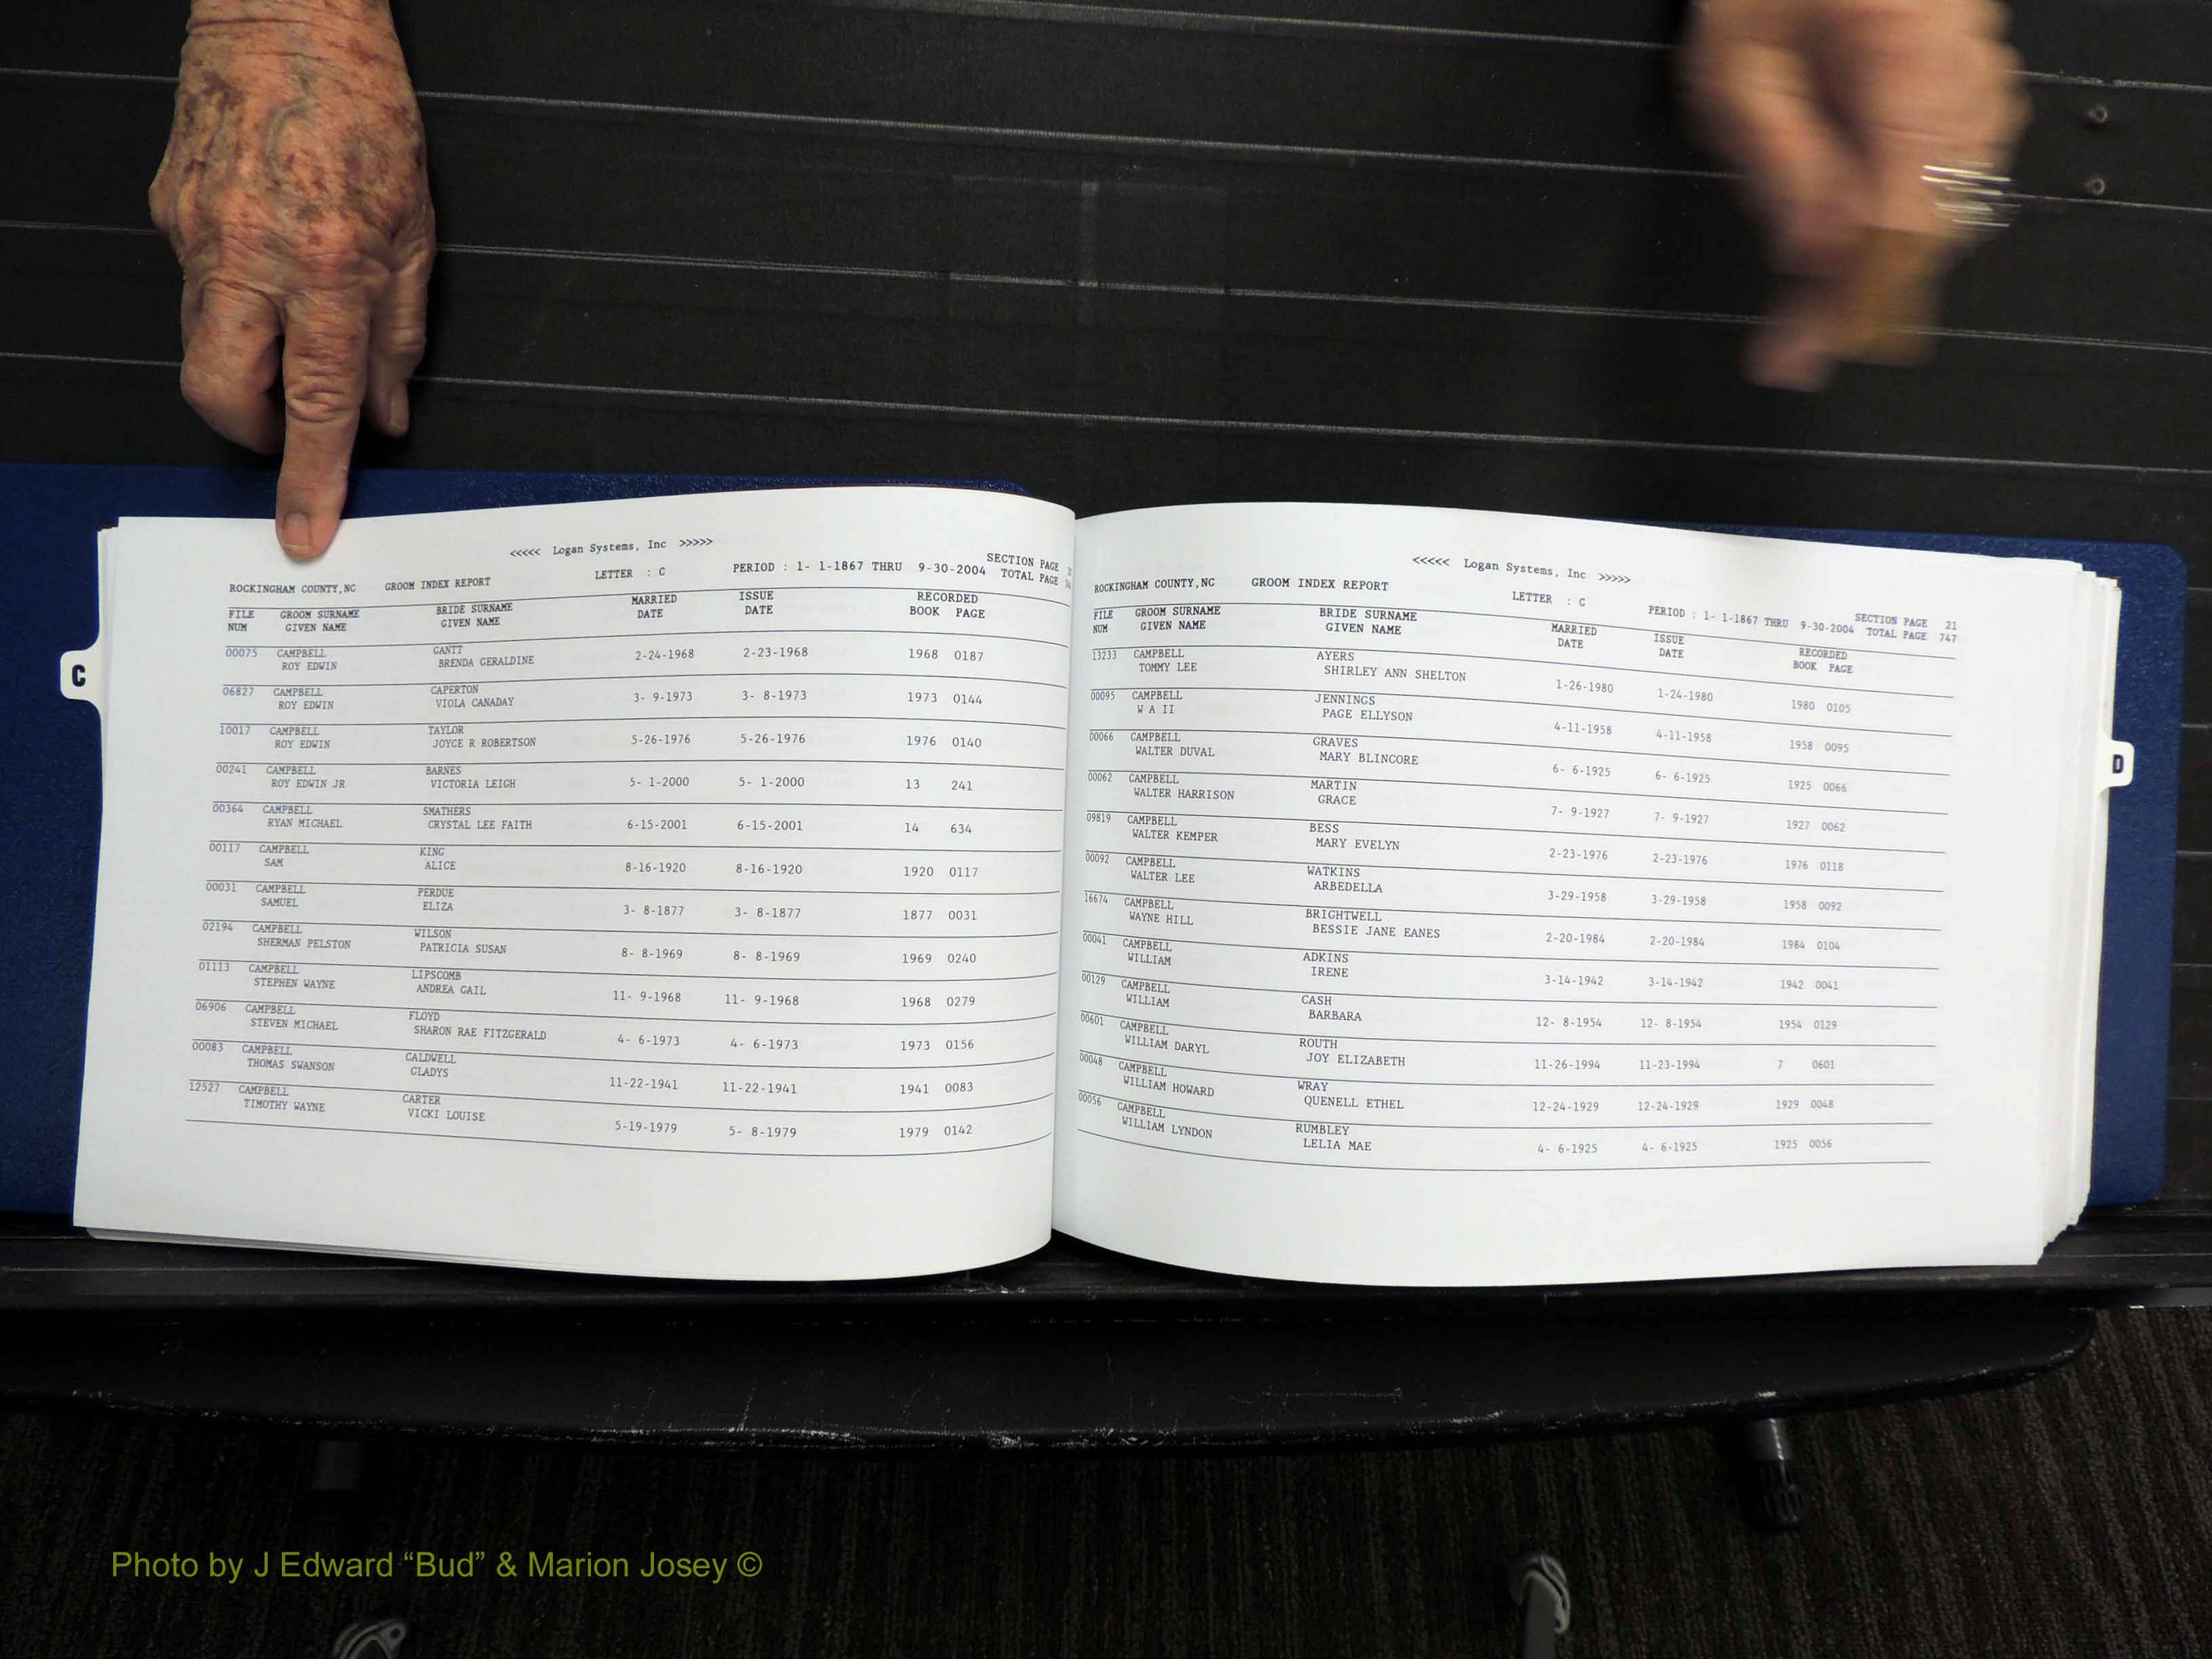 <<<<< Logan Systems, Inc >>>>>
ROCKINGHAM COUNTY,NC GROOM INDEX REPORT LETTER : C PERIOD : 1- 1-1867 THRU 9-30-2004 SECTION PAGE
TOTAL PAGE
FILE GROOM SURNAME BRIDE SURNAME MARRIED ISSUE RECORDED
NUM GIVEN NAME GIVEN NAME DATE DATE BOOK PAGE
00075 CAMPBELL GANTT
ROY EDWIN BRENDA GERALDINE 2-24-1968 2-23-1968 1968 0187
06827 CAMPBELL CAPERTON
ROY EDWIN VIOLA CANADAY 3- 9-1973 3- 8-1973 1973 0144
10017 CAMPBELL TAYLOR
ROY EDWIN JOYCE R ROBERTSON 5-26-1976 5-26-1976 1976 0140
00241 CAMPBELL BARNES
ROY EDWIN JR VICTORIA LEIGH 5- 1-2000 5- 1-2000 13 241
00364 CAMPBELL SMATHERS
RYAN MICHAEL CRYSTAL LEE FAITH 6-15-2001 6-15-2001 14 634
00117 CAMPBELL KING
SAM ALICE 8-16-1920 8-16-1920 1920 0117
00031 CAMPBELL PERDUE
SAMUEL ELIZA 3- 8-1877 3- 8-1877 1877 0031
02194 CAMPBELL WILSON
SHERMAN PELSTON PATRICIA SUSAN 8- 8-1969 8- 8-1969 1969 0240
01113 CAMPBELL LIPSCOMB
STEPHEN WAYNE ANDREA GAIL 11- 9-1968 11- 9-1968 1968 0279
06906 CAMPBELL FLOYD
STEVEN MICHAEL SHARON RAE FITZGERALD 4- 6-1973 4- 6-1973 1973 0156
00083 CAMPBELL CALDWELL
THOMAS SWANSON GLADYS 11-22-1941 11-22-1941 1941 0083
12527 CAMPBELL CARTER
TIMOTHY WAYNE VICKI LOUISE 5-19-1979 5- 8-1979 1979 0142
C
<<<<< Logan Systems, Inc >>>>>
ROCKINGHAM COUNTY,NC GROOM INDEX REPORT LETTER : C PERIOD : 1- 1-1867 THRU 9-30-2004 SECTION PAGE 21
TOTAL PAGE 747
FILE GROOM SURNAME BRIDE SURNAME MARRIED ISSUE RECORDED
NUM GIVEN NAME GIVEN NAME DATE DATE BOOK PAGE
13233 CAMPBELL AYERS
TOMMY LEE SHIRLEY ANN SHELTON 1-26-1980 1-24-1980 1980 0105
00095 CAMPBELL JENNINGS
W A II PAGE ELLYSON 4-11-1958 4-11-1958 1958 0095
00066 CAMPBELL GRAVES
WALTER DUVAL MARY BLINCORE 6- 6-1925 6- 6-1925 1925 0066
00062 CAMPBELL MARTIN
WALTER HARRISON GRACE 7- 9-1927 7- 9-1927 1927 0062
09819 CAMPBELL BESS
WALTER KEMPER MARY EVELYN 2-23-1976 2-23-1976 1976 0118
00092 CAMPBELL WATKINS
WALTER LEE ARBEDELLA 3-29-1958 3-29-1958 1958 0092
16674 CAMPBELL BRIGHTWELL
WAYNE HILL BESSIE JANE EANES 2-20-1984 2-20-1984 1984 0104
00041 CAMPBELL ADKINS
WILLIAM IRENE 3-14-1942 3-14-1942 1942 0041
00129 CAMPBELL CASH
WILLIAM BARBARA 12- 8-1954 12- 8-1954 1954 0129
00601 CAMPBELL ROUTH
WILLIAM DARYL JOY ELIZABETH 11-26-1994 11-23-1994 7 0601
00048 CAMPBELL WRAY
WILLIAM HOWARD QUENELL ETHEL 12-24-1929 12-24-1929 1929 0048
00056 CAMPBELL RUMBLEY
WILLIAM LYNDON LELIA MAE 4- 6-1925 4- 6-1925 1925 0056
D
Photo by J Edward “Bud” & Marion Josey ©